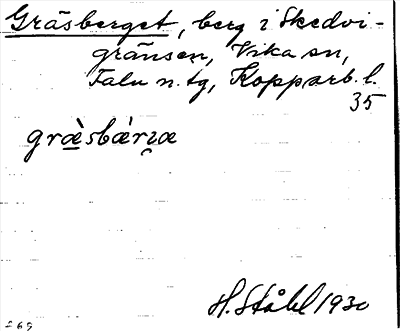 Gräsberget, berg i Skedvi-
gränsen, Vika sn,
Falu n. tg, Kopparb. l.
35
græ̀sbǽri̯æ
H. Ståhl 1930